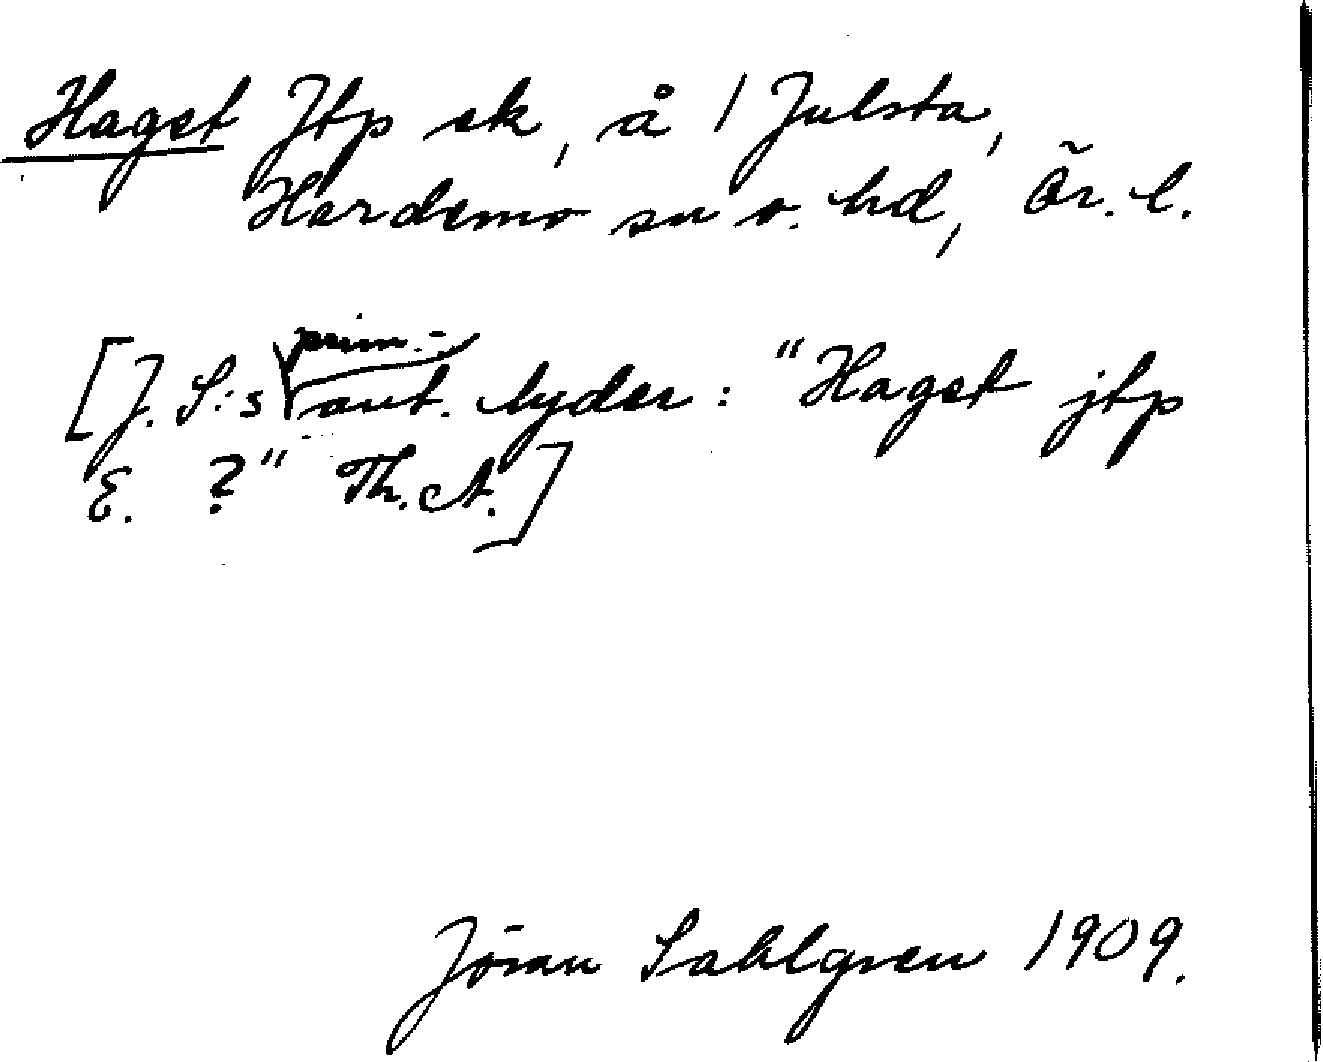 Haget Jtp sk, å 1 Julsta,
Hardemo sn o. hd, Ör. l.
[J. S:s prim.-ant. lyder: "Haget jtp
E. ?" Th. A.]
Jöran Sahlgren 1909.